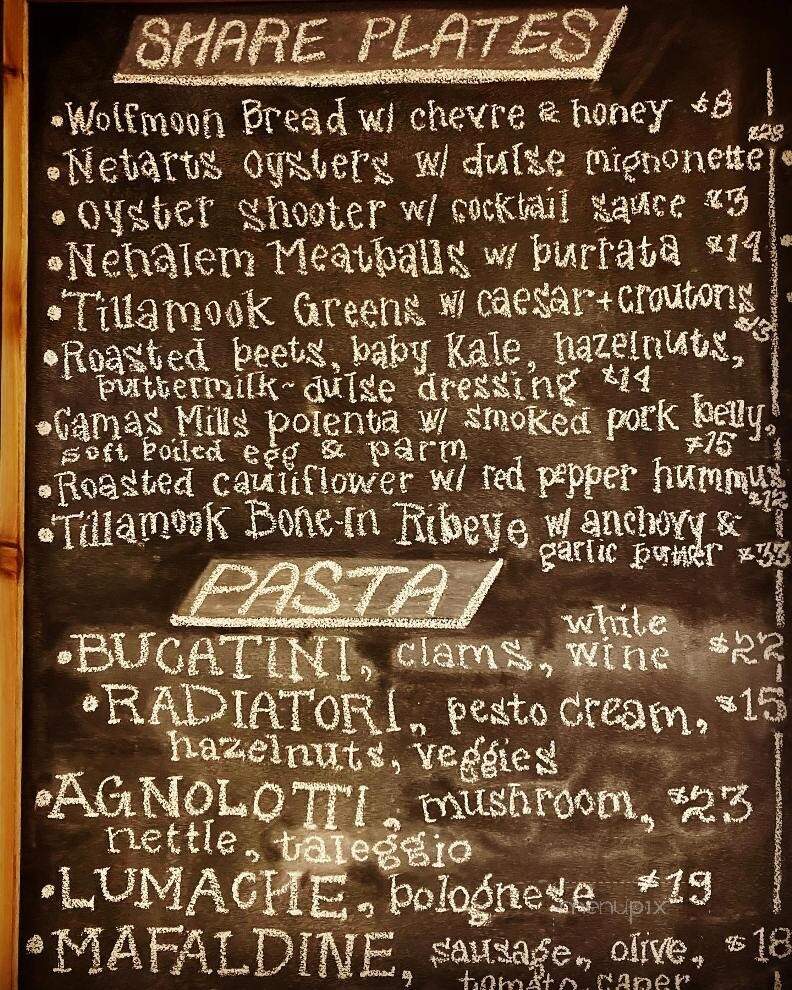 SHARE PLATES
•Wolfmoon Bread w/ chevre & honey $8
•Netarts oysters w/ dulse mignonette
•oyster shooter w/ cocktail sauce $3
•Nehalem Meatballs w/ burrata $14
•Tillamook Greens w/ caesar+croutons
$13
•Roasted beets, baby Kale, hazelnuts,
buttermilk~dulse dressing $14
•Camas Mills polenta w/ smoked pork belly,
soft boiled egg & parm $15
•Roasted cauliflower w/ red pepper hummus
$12
•Tillamook Bone-In Ribeye w/ anchovy &
garlic butter $33
PASTA
•BUCATINI, clams, white wine $22
•RADIATORI, pesto cream, $15
hazelnuts, veggies
•AGNOLOTTI, mushroom, $23
nettle, taleggio
•LUMACHE, bolognese $19
menupix
•MAFALDINE, sausage, olive, $18
tomato, caper